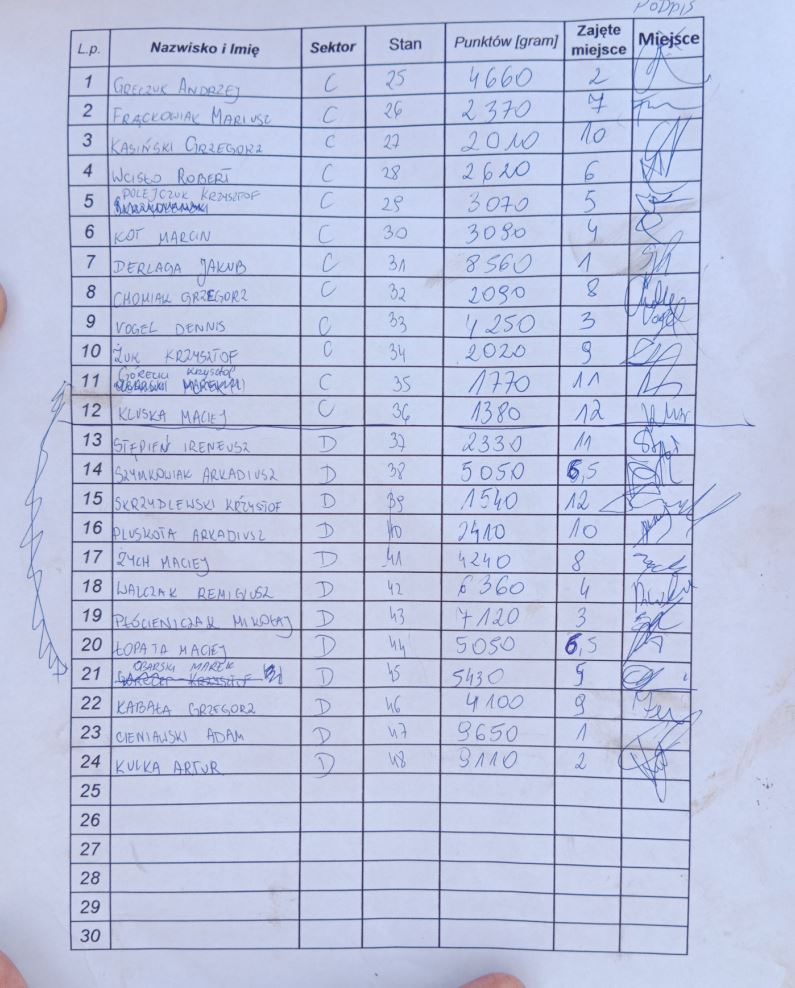 PODPIS
L.p. Nazwisko i Imię Sektor Stan Punktów [gram] Zajęte miejsce Miejsce
1 GRELZUK ANDRZEJ C 25 4660 2
2 FRĄCKOWIAK MARIUSZ C 26 2370 7
3 KASIŃSKI GRZEGORZ C 27 2010 10
4 WCISŁO ROBERT C 28 2620 6
5 POLEJCZUK KRZYSZTOF C 29 3070 5
6 KOT MARCIN C 30 3090 4
7 DERLAGA JAKUB C 31 8560 1
8 CHOMIAK GRZEGORZ C 32 2090 8
9 VOGEL DENNIS C 33 4250 3 Vogel
10 ŻUK KRZYSZTOF C 34 2020 9
11 GÓRECKI KRZYSZTOF C 35 1770 11
12 KLUSKA MACIEJ C 36 1380 12
13 STĘPIEŃ IRENEUSZ D 37 2330 11
14 SZYMKOWIAK ARKADIUSZ D 38 5050 6,5
15 SKRZYDLEWSKI KRZYSTOF D 39 1540 12
16 PLUSKOTA ARKADIUSZ D 40 2410 10
17 ŻYCH MACIEJ D 41 4240 8
18 WALCZAK REMIGIUSZ D 42 6360 4
19 PŁÓCIENICZAK MIKOŁAJ D 43 7120 3
20 ŁOPATA MACIEJ D 44 5050 6,5
21 OBARSKI MAREK D 45 5430 5
22 KABAŁA GRZEGORZ D 46 4100 9
23 CIENIAWSKI ADAM D 47 9650 1
24 KULKA ARTUR D 48 9110 2
25
26
27
28
29
30